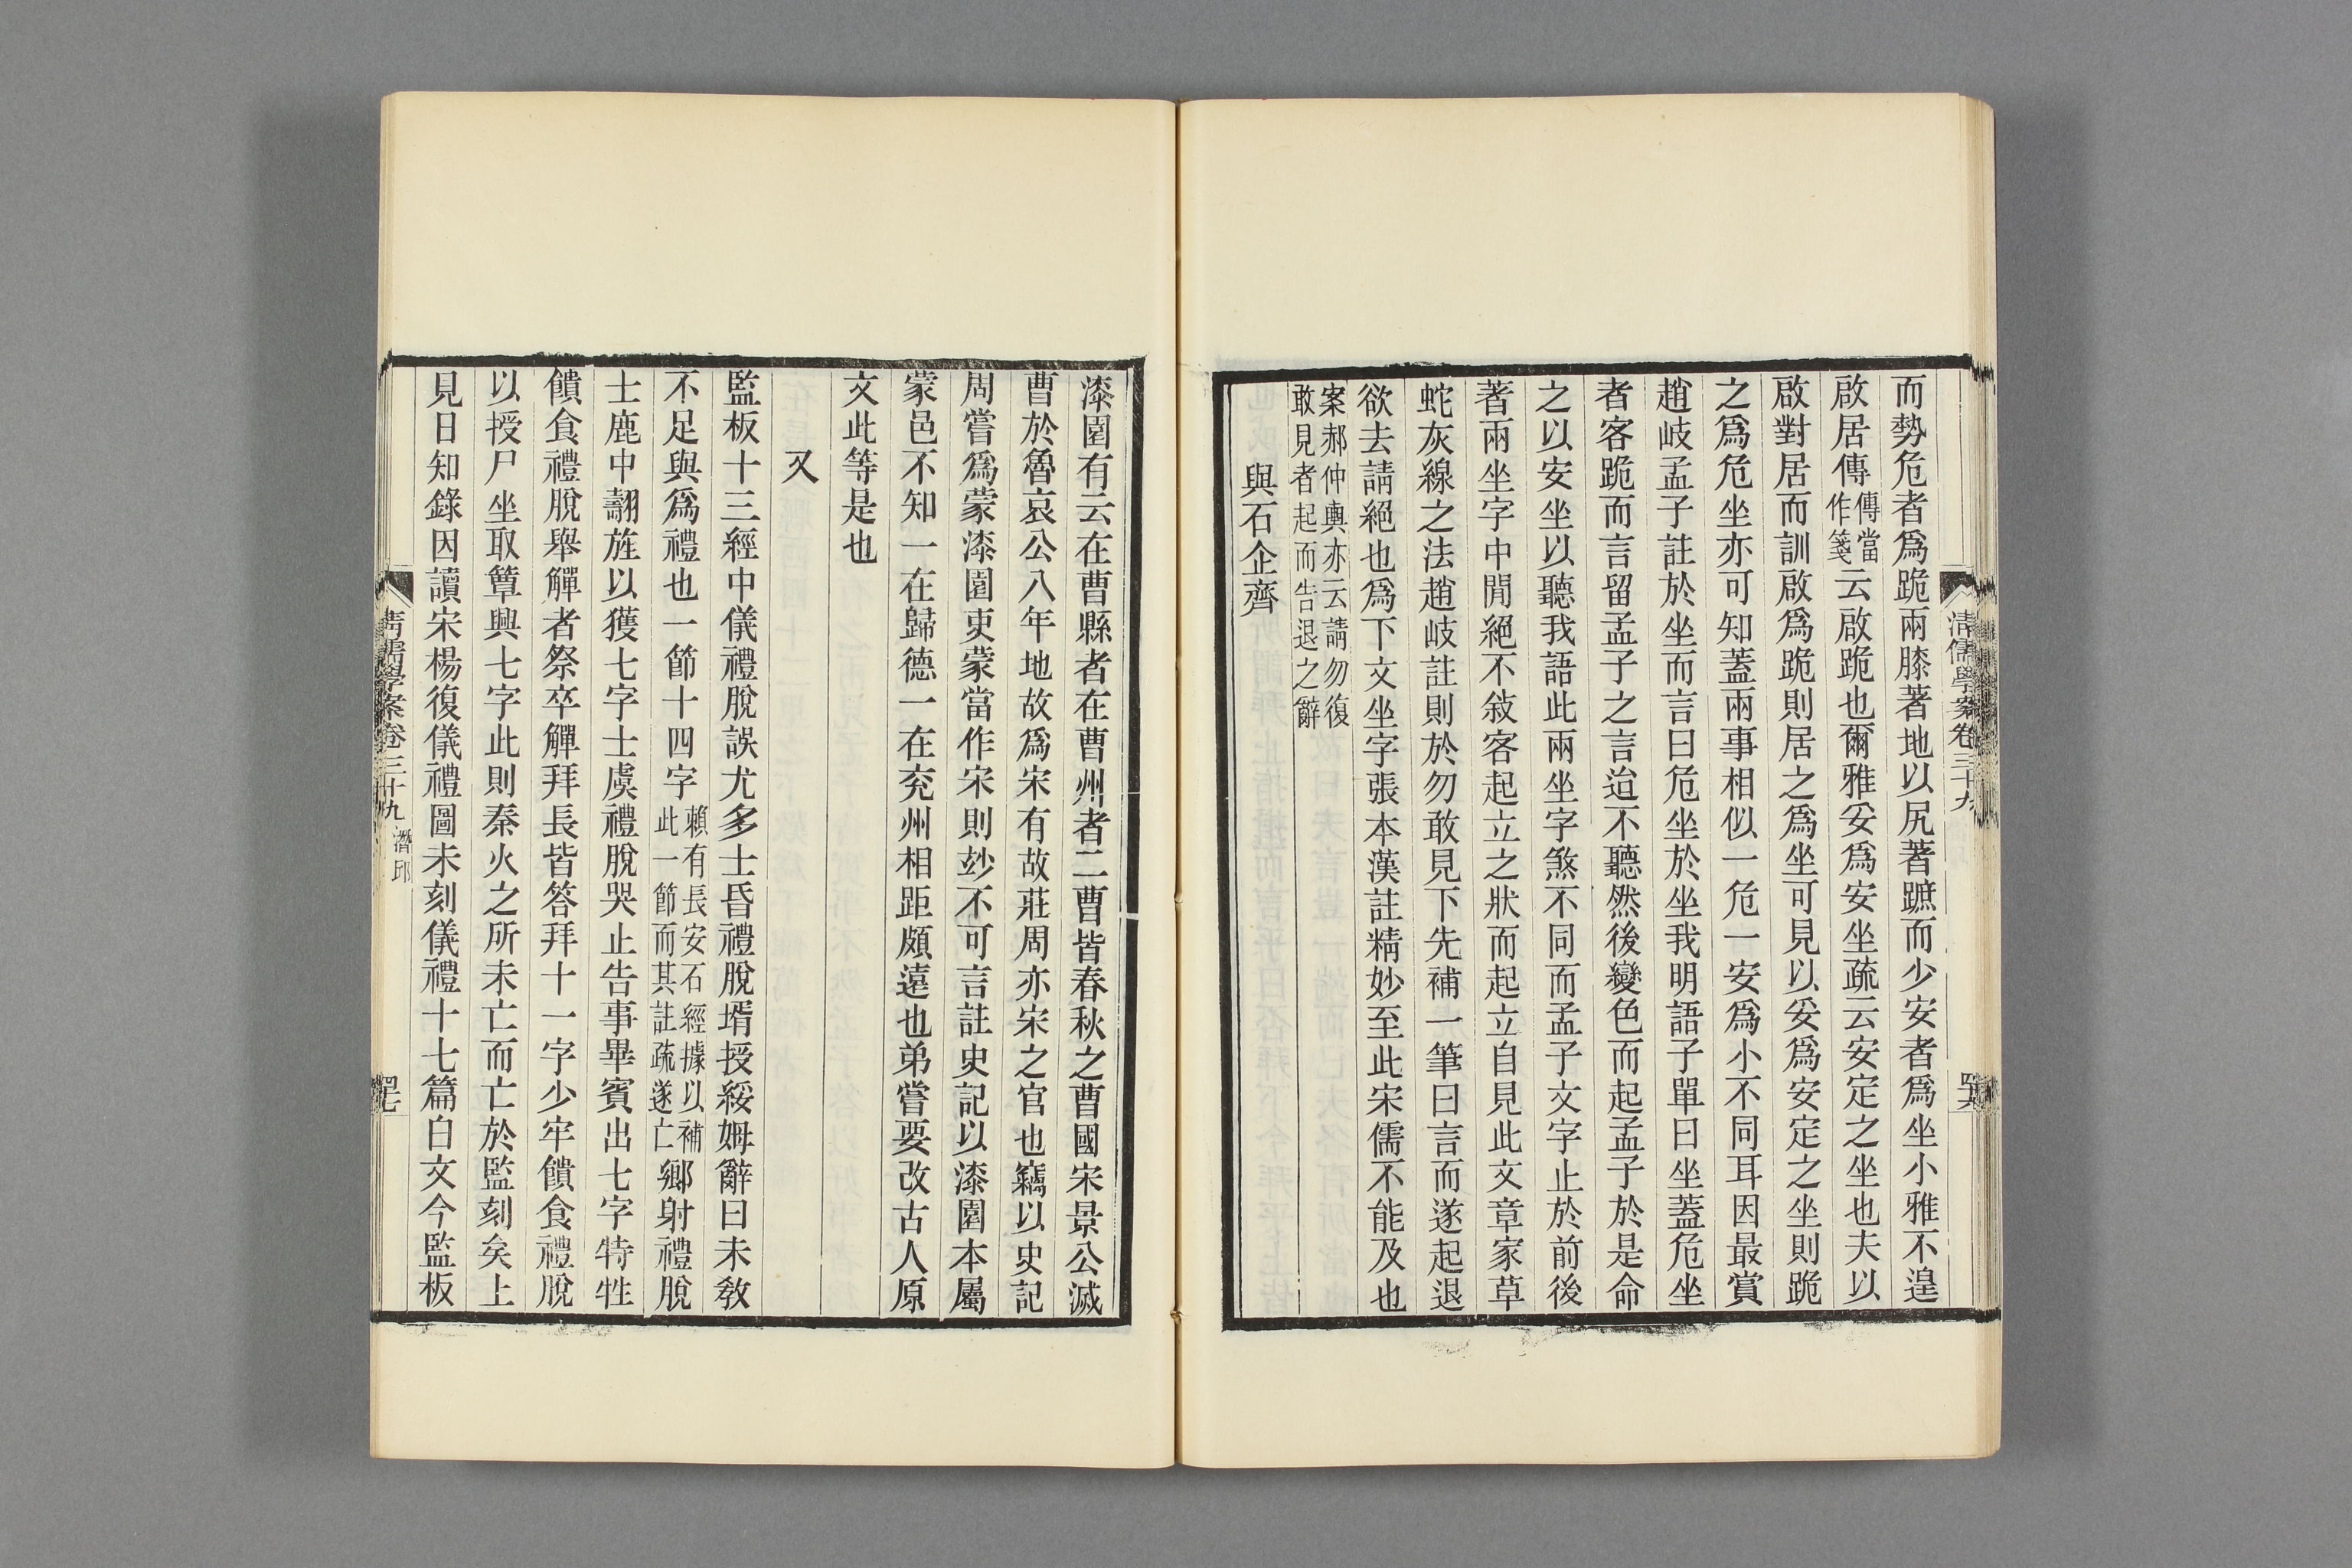 清儒學案卷三十九
四十六
而勢危者爲跪兩膝著地以尻著蹠而少安者爲坐小雅不遑
啟居傳傳當作箋云啟跪也爾雅妥爲安坐疏云安定之坐也夫以
啟對居而訓啟爲跪則居之爲坐可見以妥爲安定之坐則跪
之爲危坐亦可知蓋兩事相似一危一安爲小不同耳因最賞
趙岐孟子註於坐而言曰危坐於坐我明語子單曰坐蓋危坐
者客跪而言留孟子之言迨不聽然後變色而起孟子於是命
之以安坐以聽我語此兩坐字煞不同而孟子文字止於前後
著兩坐字中閒絕不敍客起立之狀而起立自見此文章家草
蛇灰線之法趙岐註則於勿敢見下先補一筆曰言而遂起退
欲去請絕也爲下文坐字張本漢註精妙至此宋儒不能及也
案郝仲輿亦云請勿復
敢見者起而告退之辭
與石企齊
漆園有云在曹縣者在曹州者二曹皆春秋之曹國宋景公滅
曹於魯哀公八年地故爲宋有故莊周亦宋之官也竊以史記
周嘗爲蒙漆園吏蒙當作宋則玅不可言註史記以漆園本屬
蒙邑不知一在歸德一在兖州相距頗遠也弟嘗要改古人原
文此等是也
又
監板十三經中儀禮脫誤尤多士昏禮脫壻授綏姆辭曰未敎
不足與爲禮也一節十四字賴有長安石經據以補此一節而其註疏遂亡鄉射禮脫
士鹿中翿旌以獲七字士虞禮脫哭止告事畢賓出七字特牲
饋食禮脫舉觶者祭卒觶拜長皆答拜十一字少牢饋食禮脫
以授尸坐取簞興七字此則秦火之所未亡而亡於監刻矣上
見日知錄因讀宋楊復儀禮圖未刻儀禮十七篇白文今監板
清儒學案卷三十九 潛邱
四十七